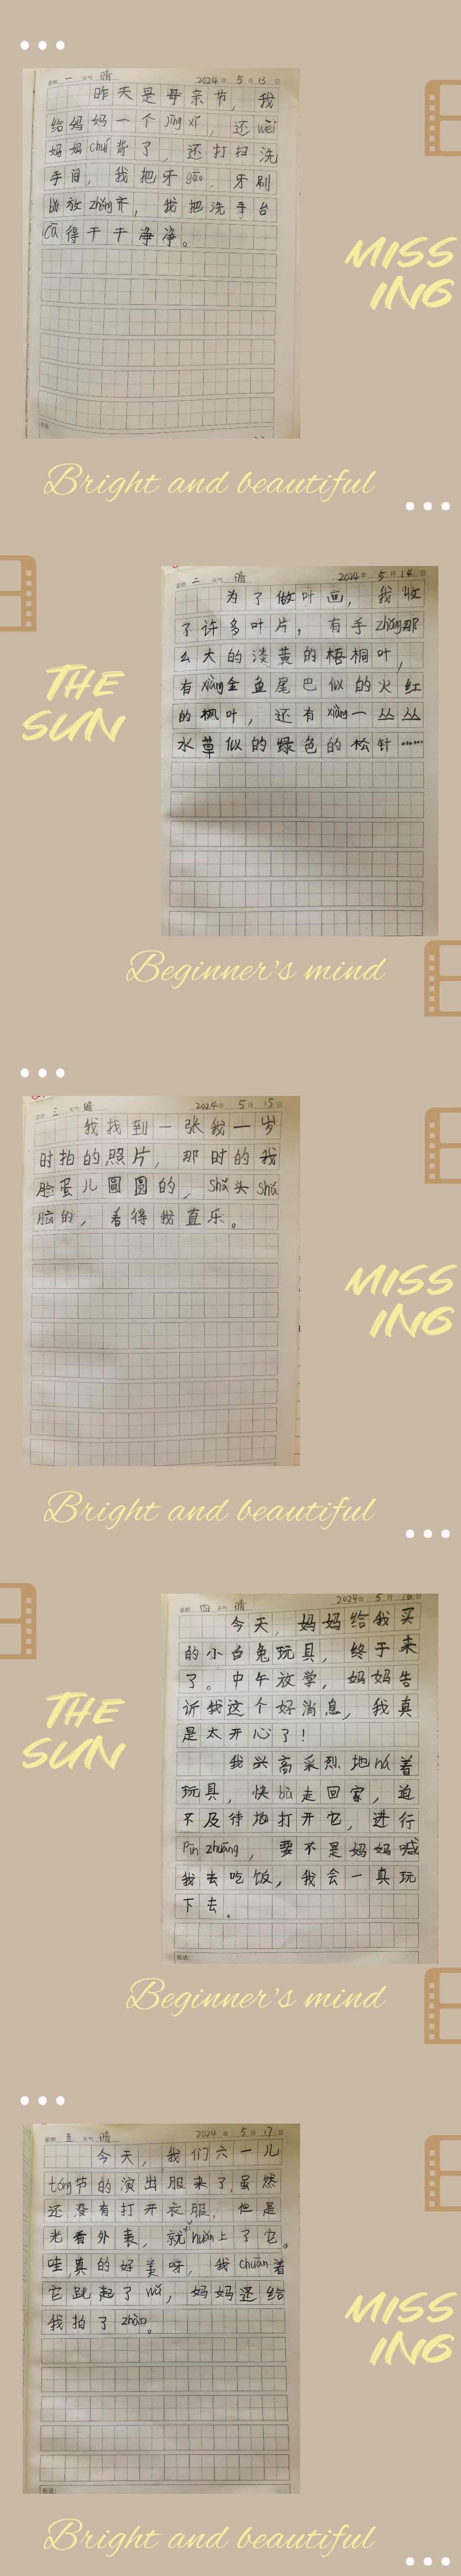 星期 一 天气 晴 2024年 5月13日
昨天是母亲节，我
给妈妈一个jīng xǐ，还wèi
妈妈chuí背了，还打扫洗
手间，我把牙gāo，牙刷
放zhěng齐，我把洗手台
cā得干干净净。
批语:
MISS
ING
Bright and beautiful
星期 二 天气 晴 2024年 5月14日
为了做叶画，我收
了许多叶片，有手zhǎng那
么大的淡黄的梧桐叶，
有xiàng金鱼尾巴似的火红
的枫叶，还有xiàng一丛丛
水草似的绿色的松针……
THE
SUN
Beginner's mind
星期 三 天气 晴 2024年 5月15日
我找到一张我一岁
时拍的照片，那时的我
脸蛋儿圆圆的，shǎ头shǎ
脑的，看得我直乐。
MISS
ING
Bright and beautiful
星期 四 天气 晴 2024年 5月16日
今天，妈妈给我买
的小白兔玩具，终于来
了。中午放学，妈妈告
诉我这个好消息，我真
是太开心了！
我兴高采烈地ná着
玩具，快bù走回家，迫
不及待地打开它，进行
Pīn zhuāng，要不是妈妈喊
我去吃饭，我会一真玩
下去。
批语:
THE
SUN
Beginner's mind
星期 五 天气 晴 2024年 5月17日
今天，我们六一儿
tóng节的演出服来了，虽然
还没有打开衣服，但是
光看外表，就 上了它。
哇，真的好美呀，我chuān着
它跳起了wǔ，妈妈还给
我拍了zhào。
批语:
MISS
ING
Bright and beautiful